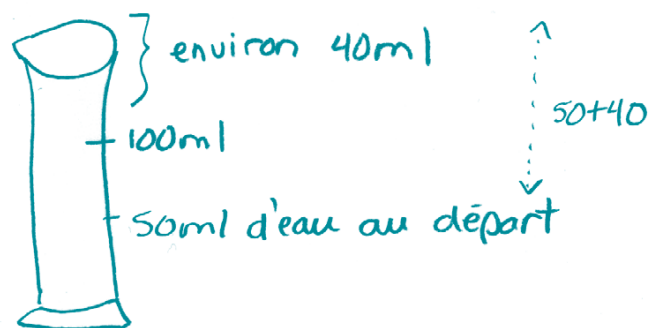 environ 40ml
50+40
100ml
50ml d'eau au départ